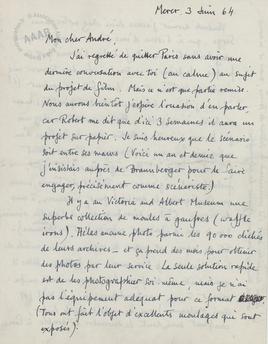 Mercr. 3 Juin 64
Mon cher André,
J'ai regretté de quitter Paris sans avoir une
dernière conversation avec toi (au calme) au sujet
du projet de film. Mais ce n'est que partie remise.
Nous aurons bientôt j'espère l'occasion d'en parler,
car Robert me dit que d'ici 3 semaines il aura un
projet sur papier. Je suis heureux que le scénario
soit entre ses mains (Voici un an et demie, que
j'insistais auprès de Braunberger pour le faire
engager, précisément comme scénariste)
Il y a au Victoria and Albert Museum une
superbe collection de moules à gaufres (waffle
irons). Hélas aucune photo parmi les 90.000 clichés
de leurs archives — et ça prend des mois pour obtenir
des photos par leur service. La seule solution rapide
est de les photographier soi-même, mais je n'ai
pas l'équipement adéquat pour ce format
(Tous ont fait l'objet d'excellents moulages qui sont
exposés).